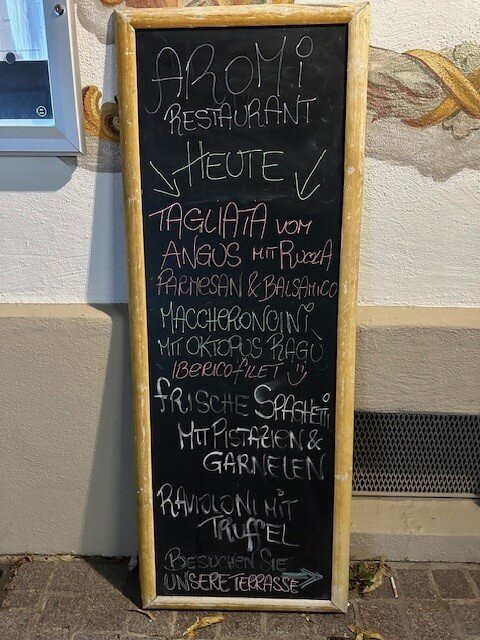 AROMi
RESTAURANT
HEUTE
TAGLIATA VOM
ANGUS MIT RUCOLA
PARMESAN & BALSAMICO
MACCHERONCINI
MIT OKTOPUS RAGÙ
IBERICO FILET
FRISCHE SPAGHETTI
MIT PISTAZIEN &
GARNELEN
RAVIOLONI MIT
TRUFFEL
BESUCHEN SIE
UNSERE TERRASSE